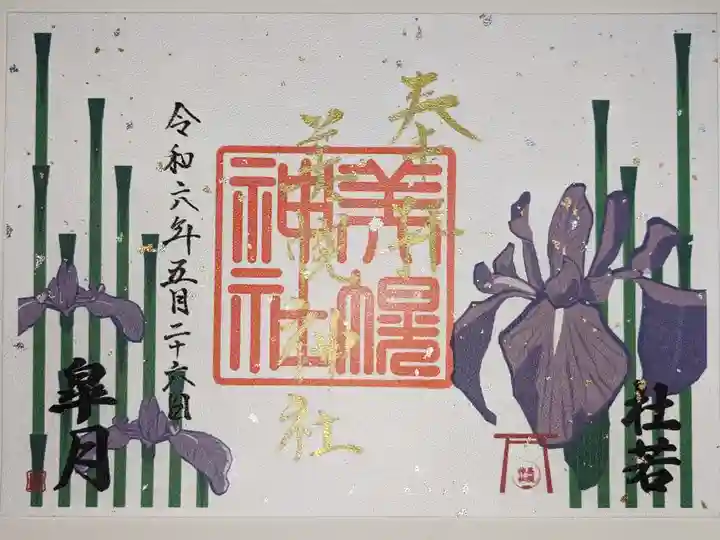 杜若
奉拝
美幌神社
美幌
神社
令和六年五月二十六日
皐月